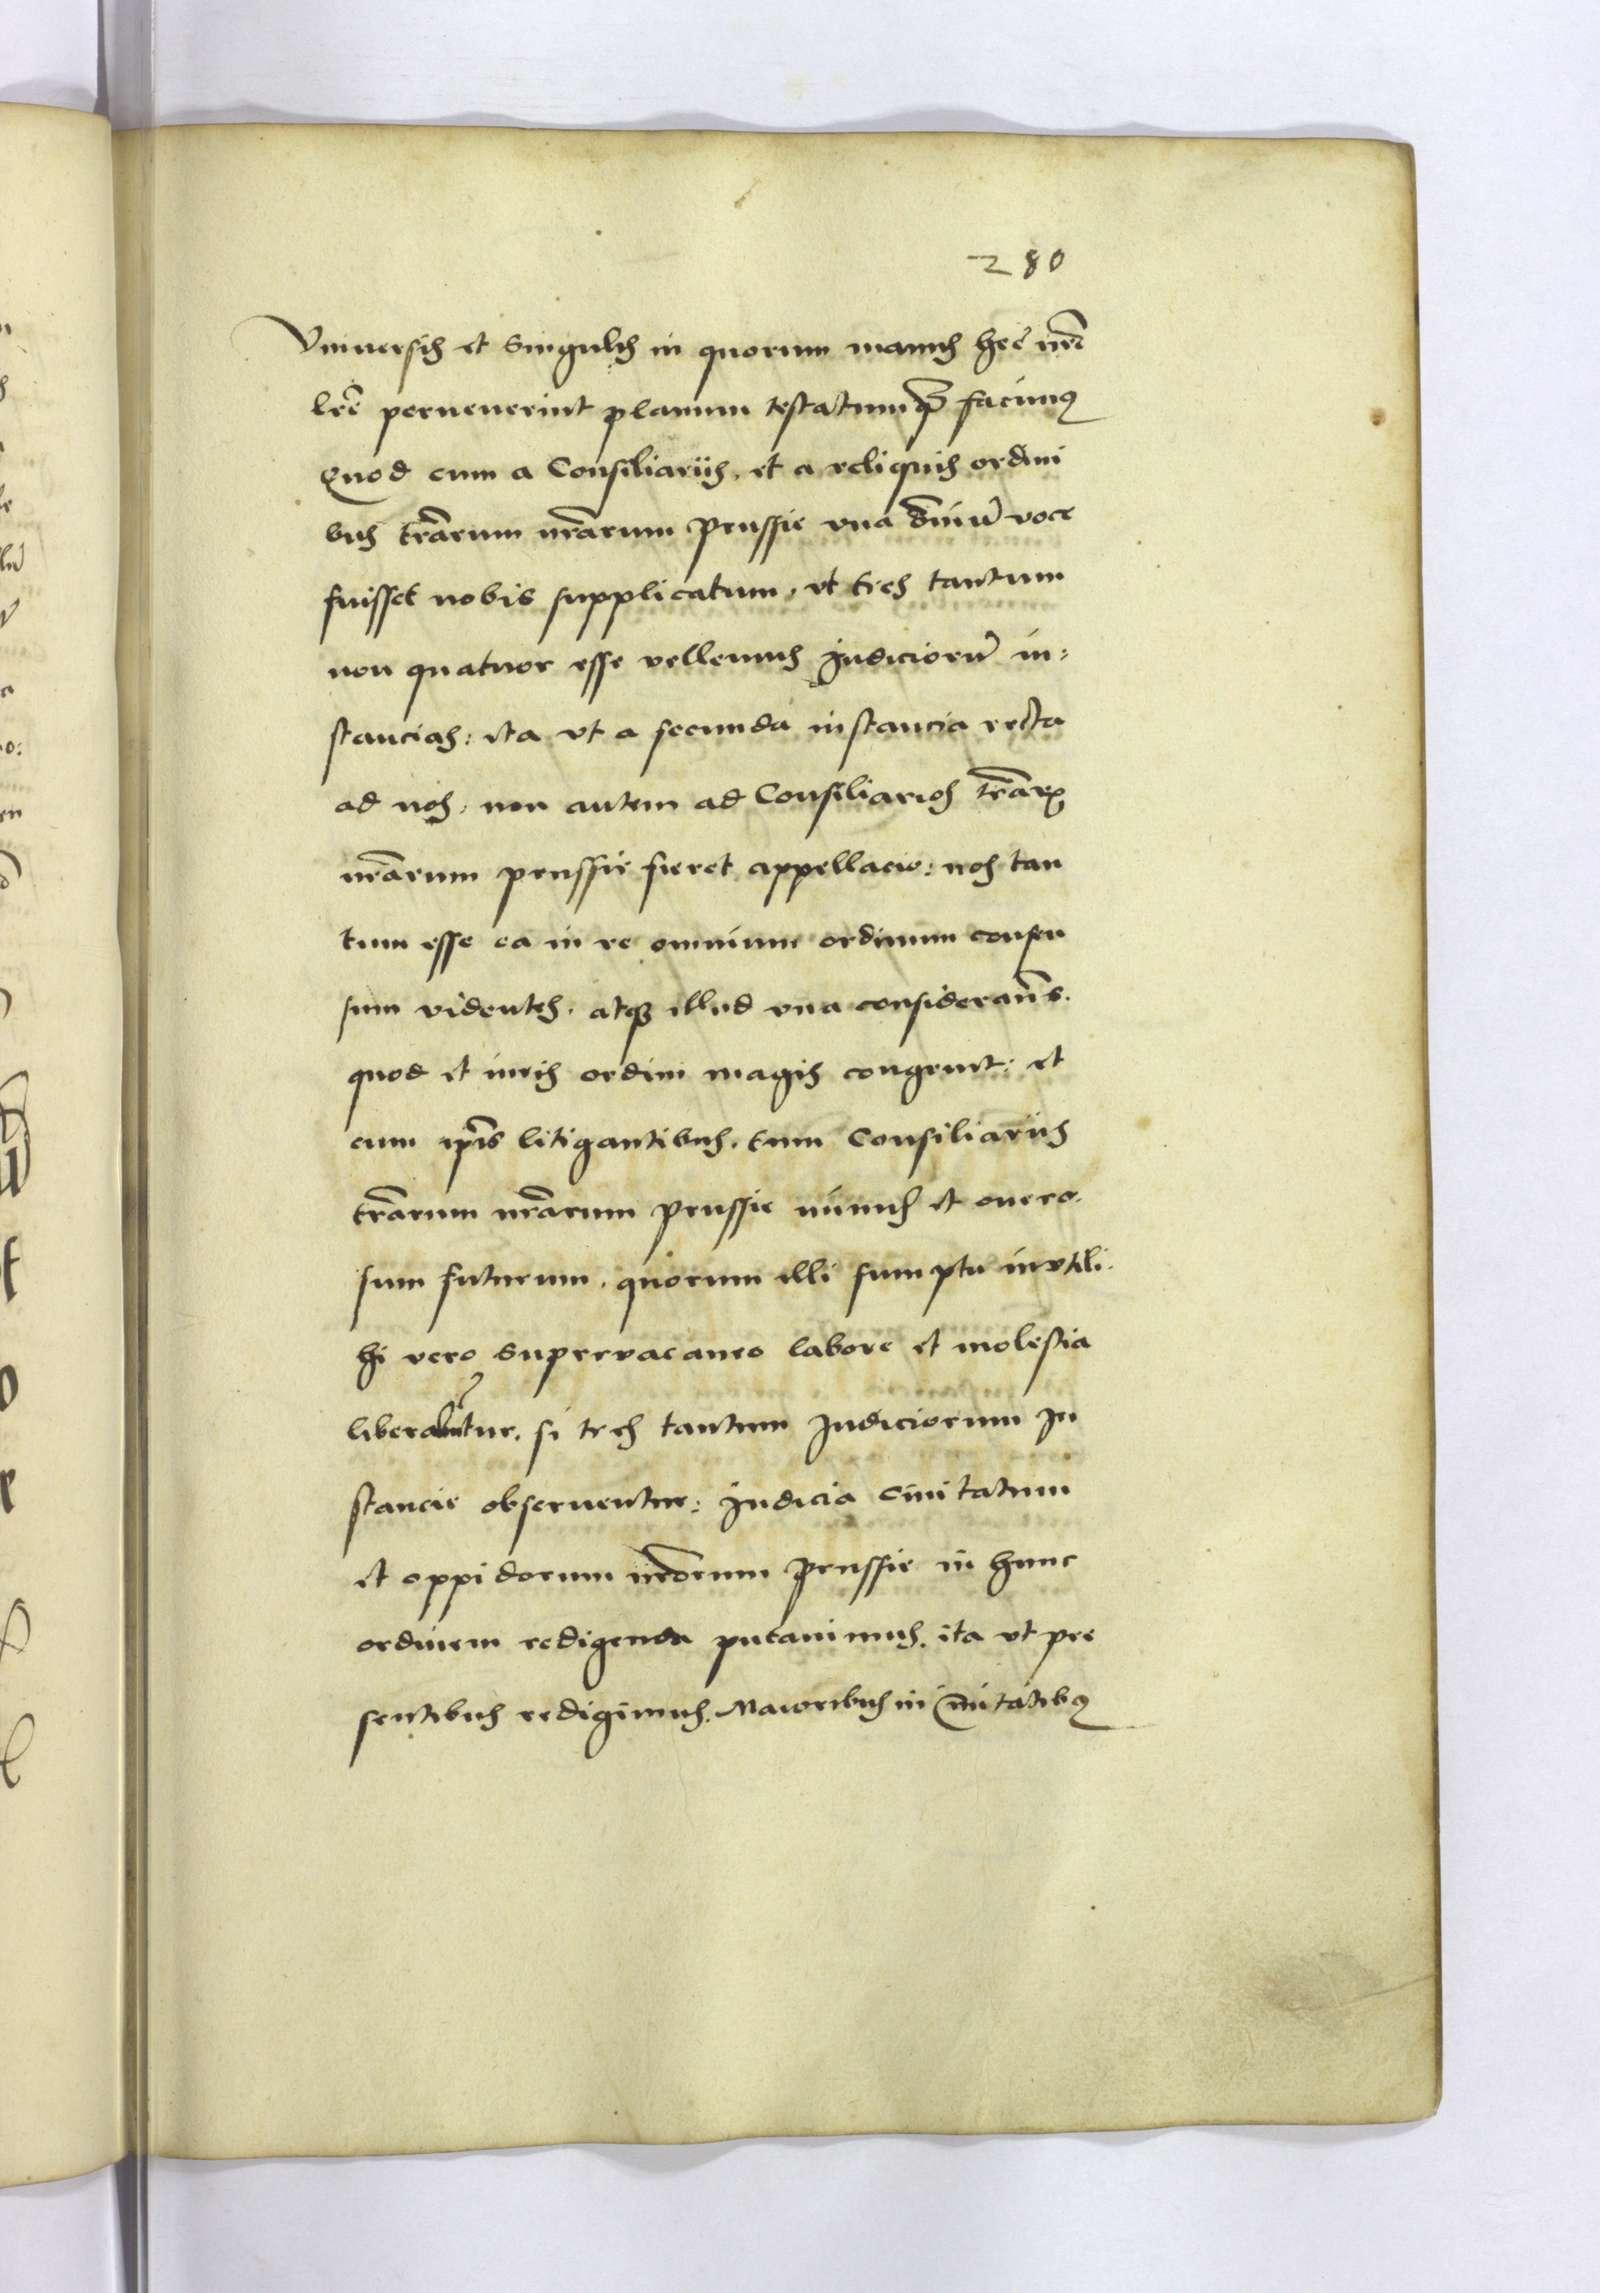 280
Vniuersis et Singulis in quorum manus hee nr̃e
lr̃e peruenerint planum testatumq̃ facimꝰ
Quod cum a Consiliarijs, et a reliquis ordini
bus tr̃arum nr̃arum Prussie vna om̃iũ voce
fuisset nobis supplicatum, vt tres tantum
non quatuor esse vellemus Judiciorũ in:
stancias: ita vt a secunda instancia recta
ad nos, non autem ad Consiliarios tr̃arꝝ
nr̃arum prussie fieret appellacio: nos tan
tum esse ea in re omnium ordinum consen
sum videntes, atqꝫ illud vna considerant̃s.
quod et iuris ordini magis congruit: et
cum ip̃is litigantibus, tum Consiliarijs
tr̃arum nr̃arum prussie minus et onero.
sum futurum, quorum illi sumptu invtili.
hi vero supervacaneo labore et molestia
liberabũtur, si tres tantum Judiciorum In
stancie obseruentur: Judicia Ciuitatum
et oppidorum nr̃orum Prussie in hunc
ordinem redigenda putauimus, ita vt pre
sentibus redigimus. Maioribus in Ciuitatibꝰ